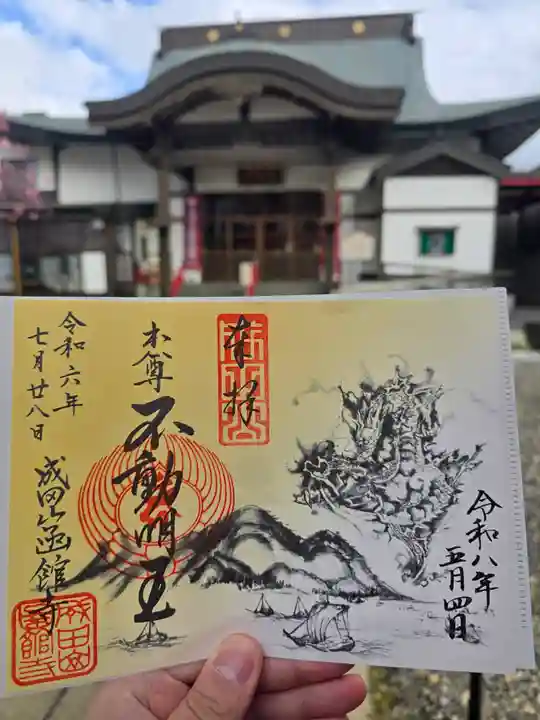 令和八年
五月四日
奉拝
本尊
不動明王
成田山函館寺
令和六年
七月廿八日